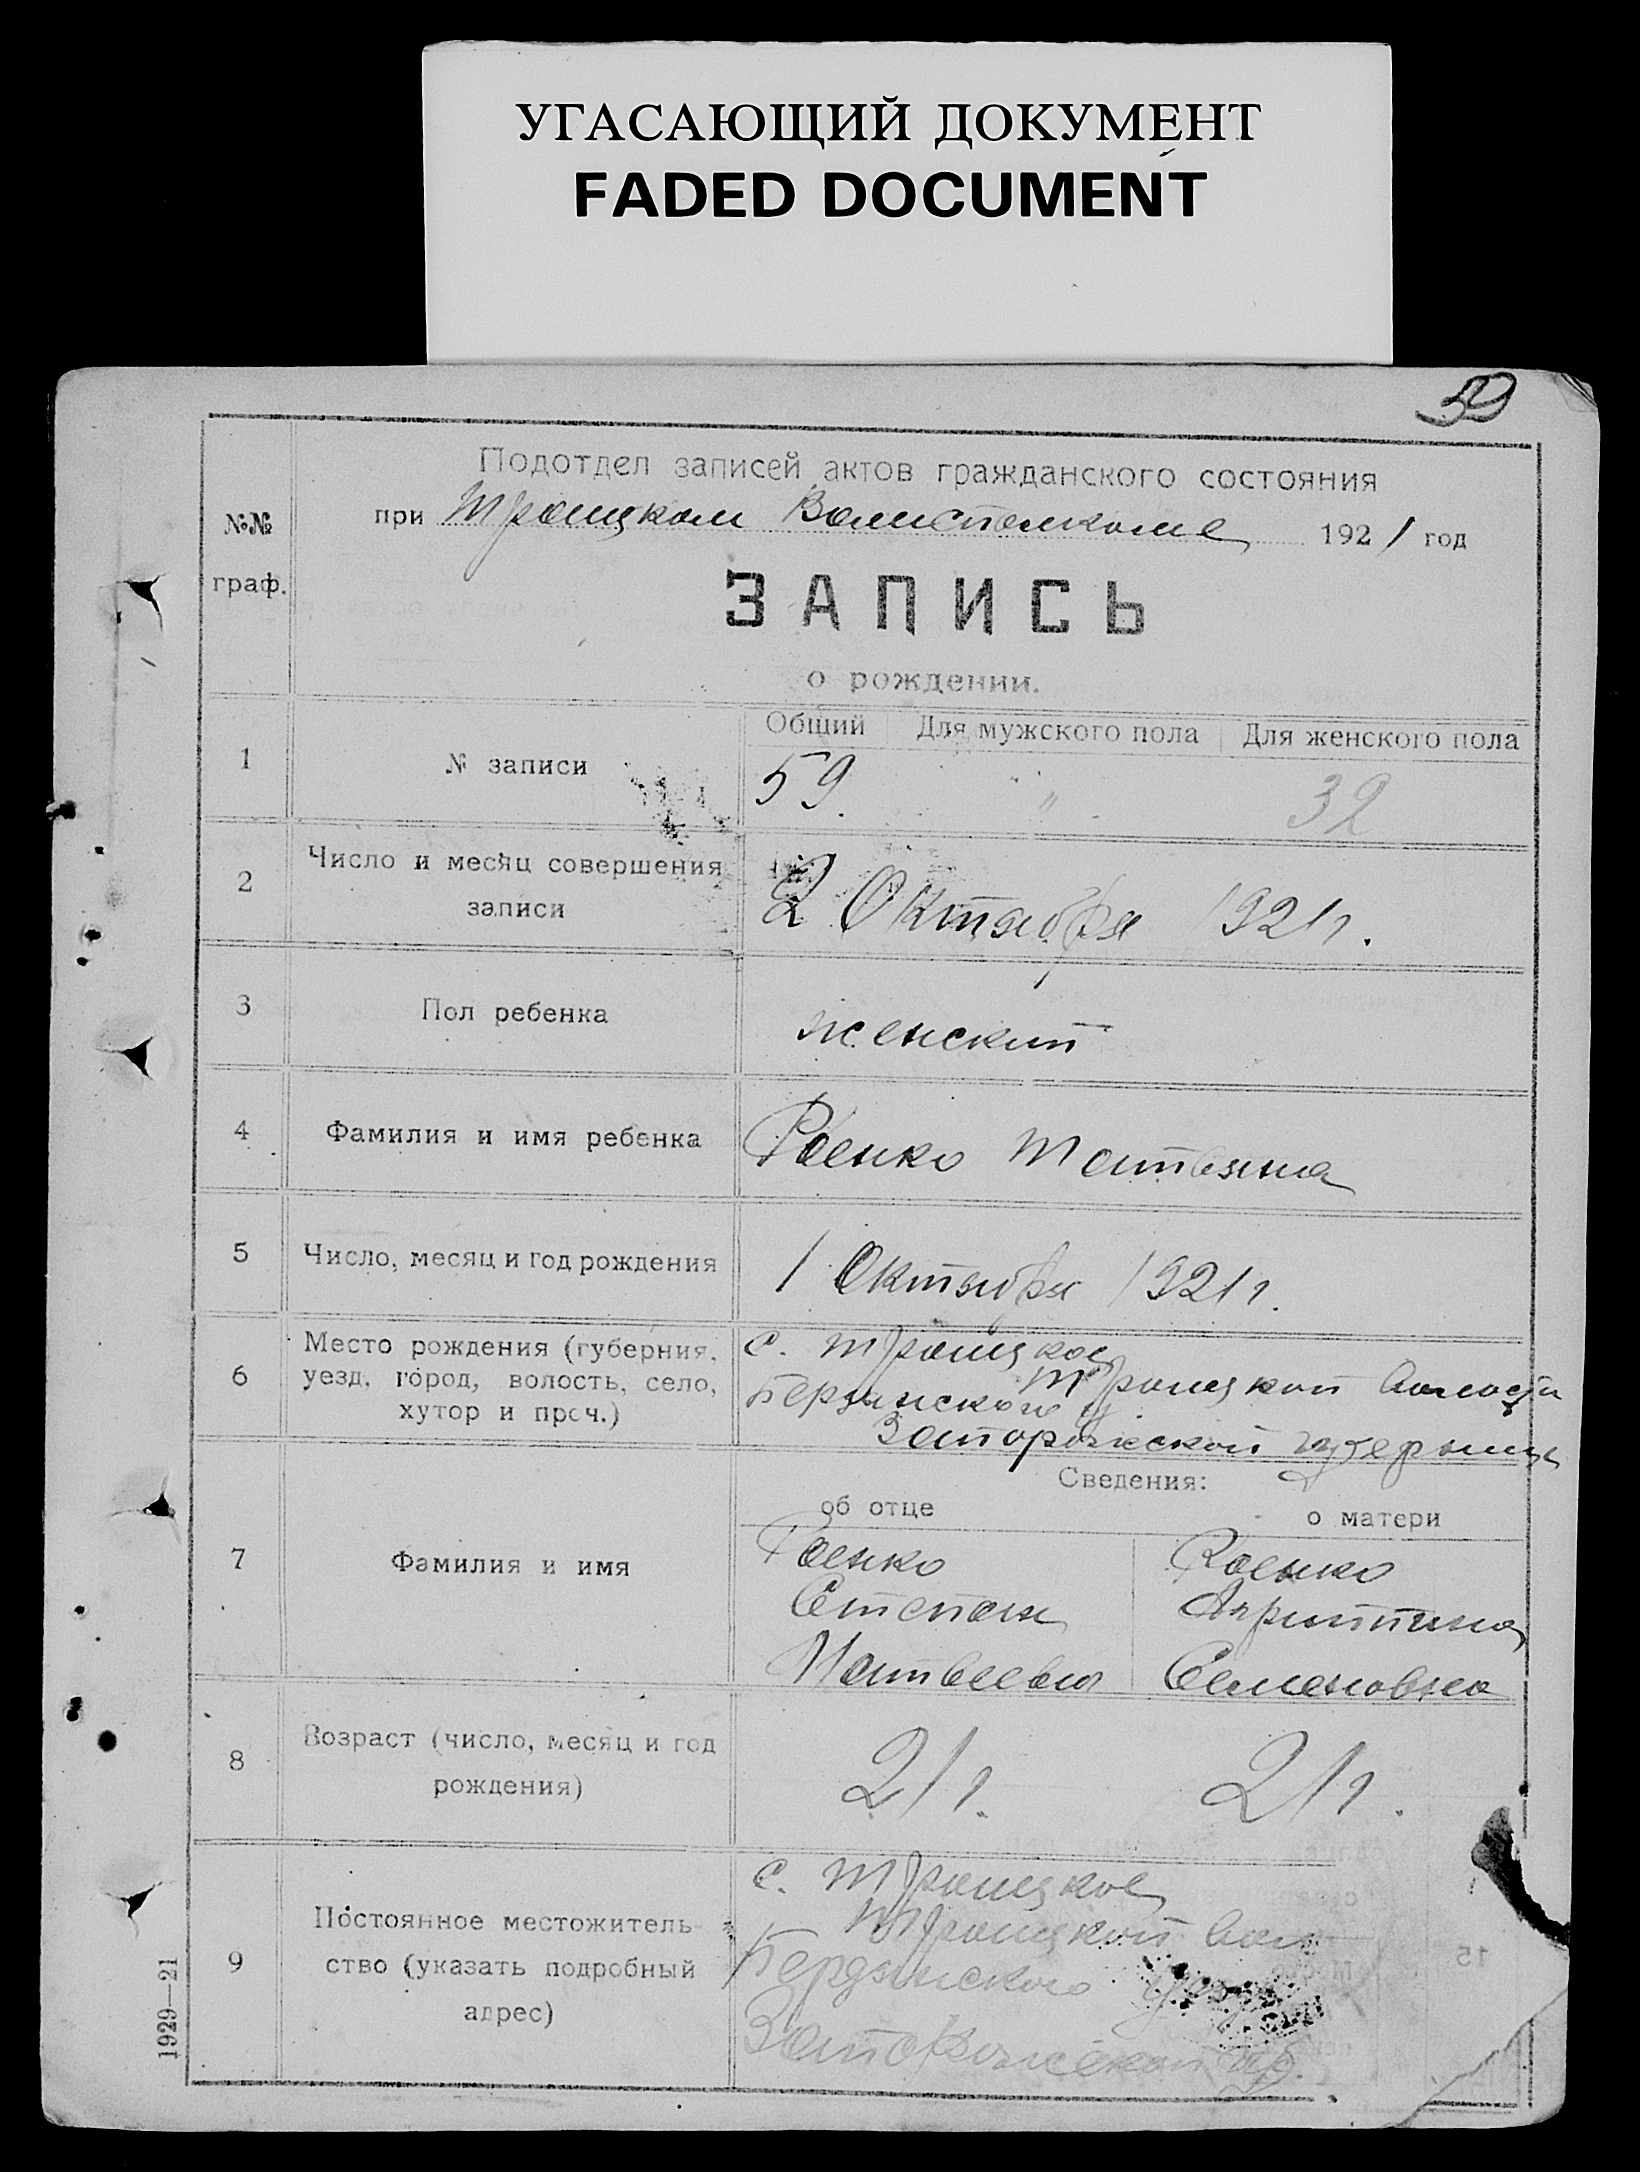 УГАСАЮЩИЙ ДОКУМЕНТ
FADED DOCUMENT
59
Подотдел записей актов гражданского состояния
№№ граф.
при Троицком Волисполкоме 1921 год
ЗАПИСЬ
о рождении.
Общий Для мужского пола Для женского пола
1 № записи 59. " 32
2 Число и месяц совершения
записи
2 Октября 1921 г.
3 Пол ребенка женский
4 Фамилия и имя ребенка Роенко Татьяна
5 Число, месяц и год рождения 1 Октября 1921 г.
6 Место рождения (губерния,
уезд, город, волость, село,
хутор и проч.)
с. Троицкое
Троицкой волости
Бердянского у.
Запорожской губернии
Сведения:
об отце о матери
7 Фамилия и имя
Роенко Роенко
Степан Агриппина
Матвеевич Семеновна
8 Возраст (число, месяц и год
рождения)
21 г. 21 г.
9 Постоянное местожитель-
ство (указать подробный
адрес)
с. Троицкое
Троицкой вол
Бердянского уезда
Запорожской губ.
1929—21
15